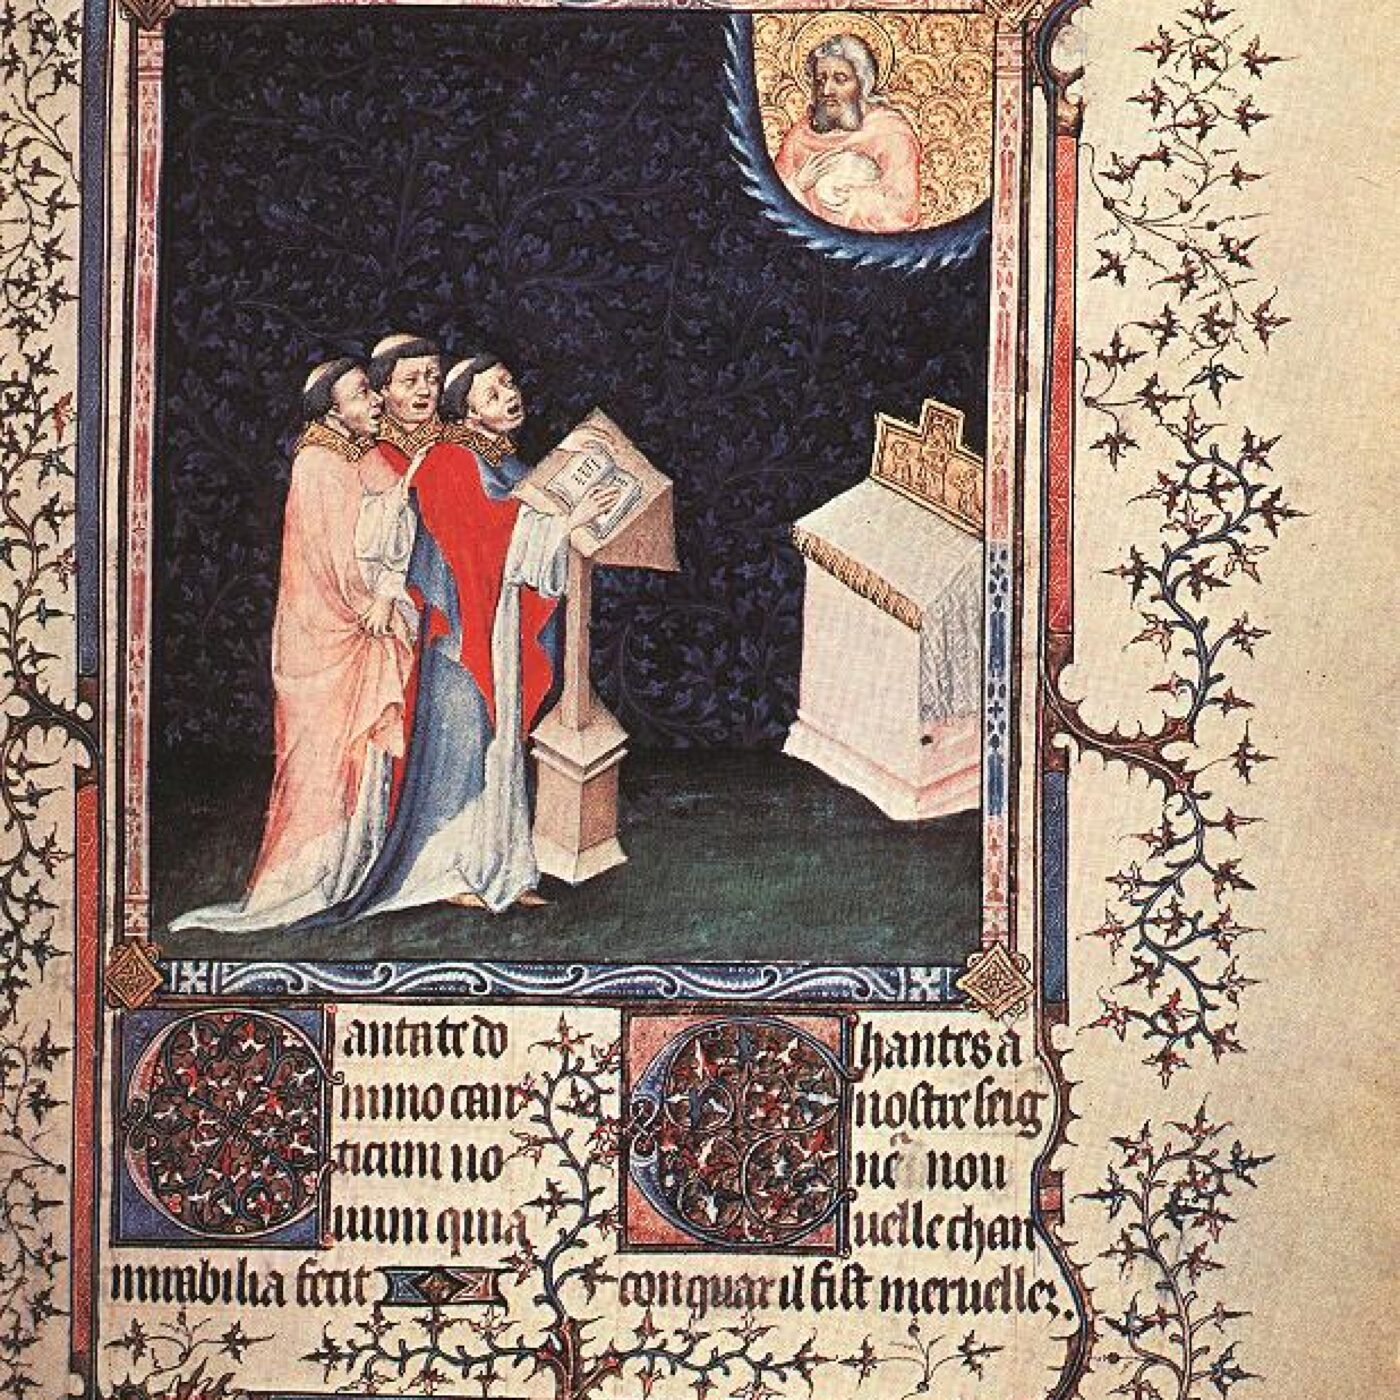 Cantate do
mino can
ticum no
uum quia
mirabilia fecit
Chantes a
nostre seig
nou
uelle chan
con quar il fist meruellez.